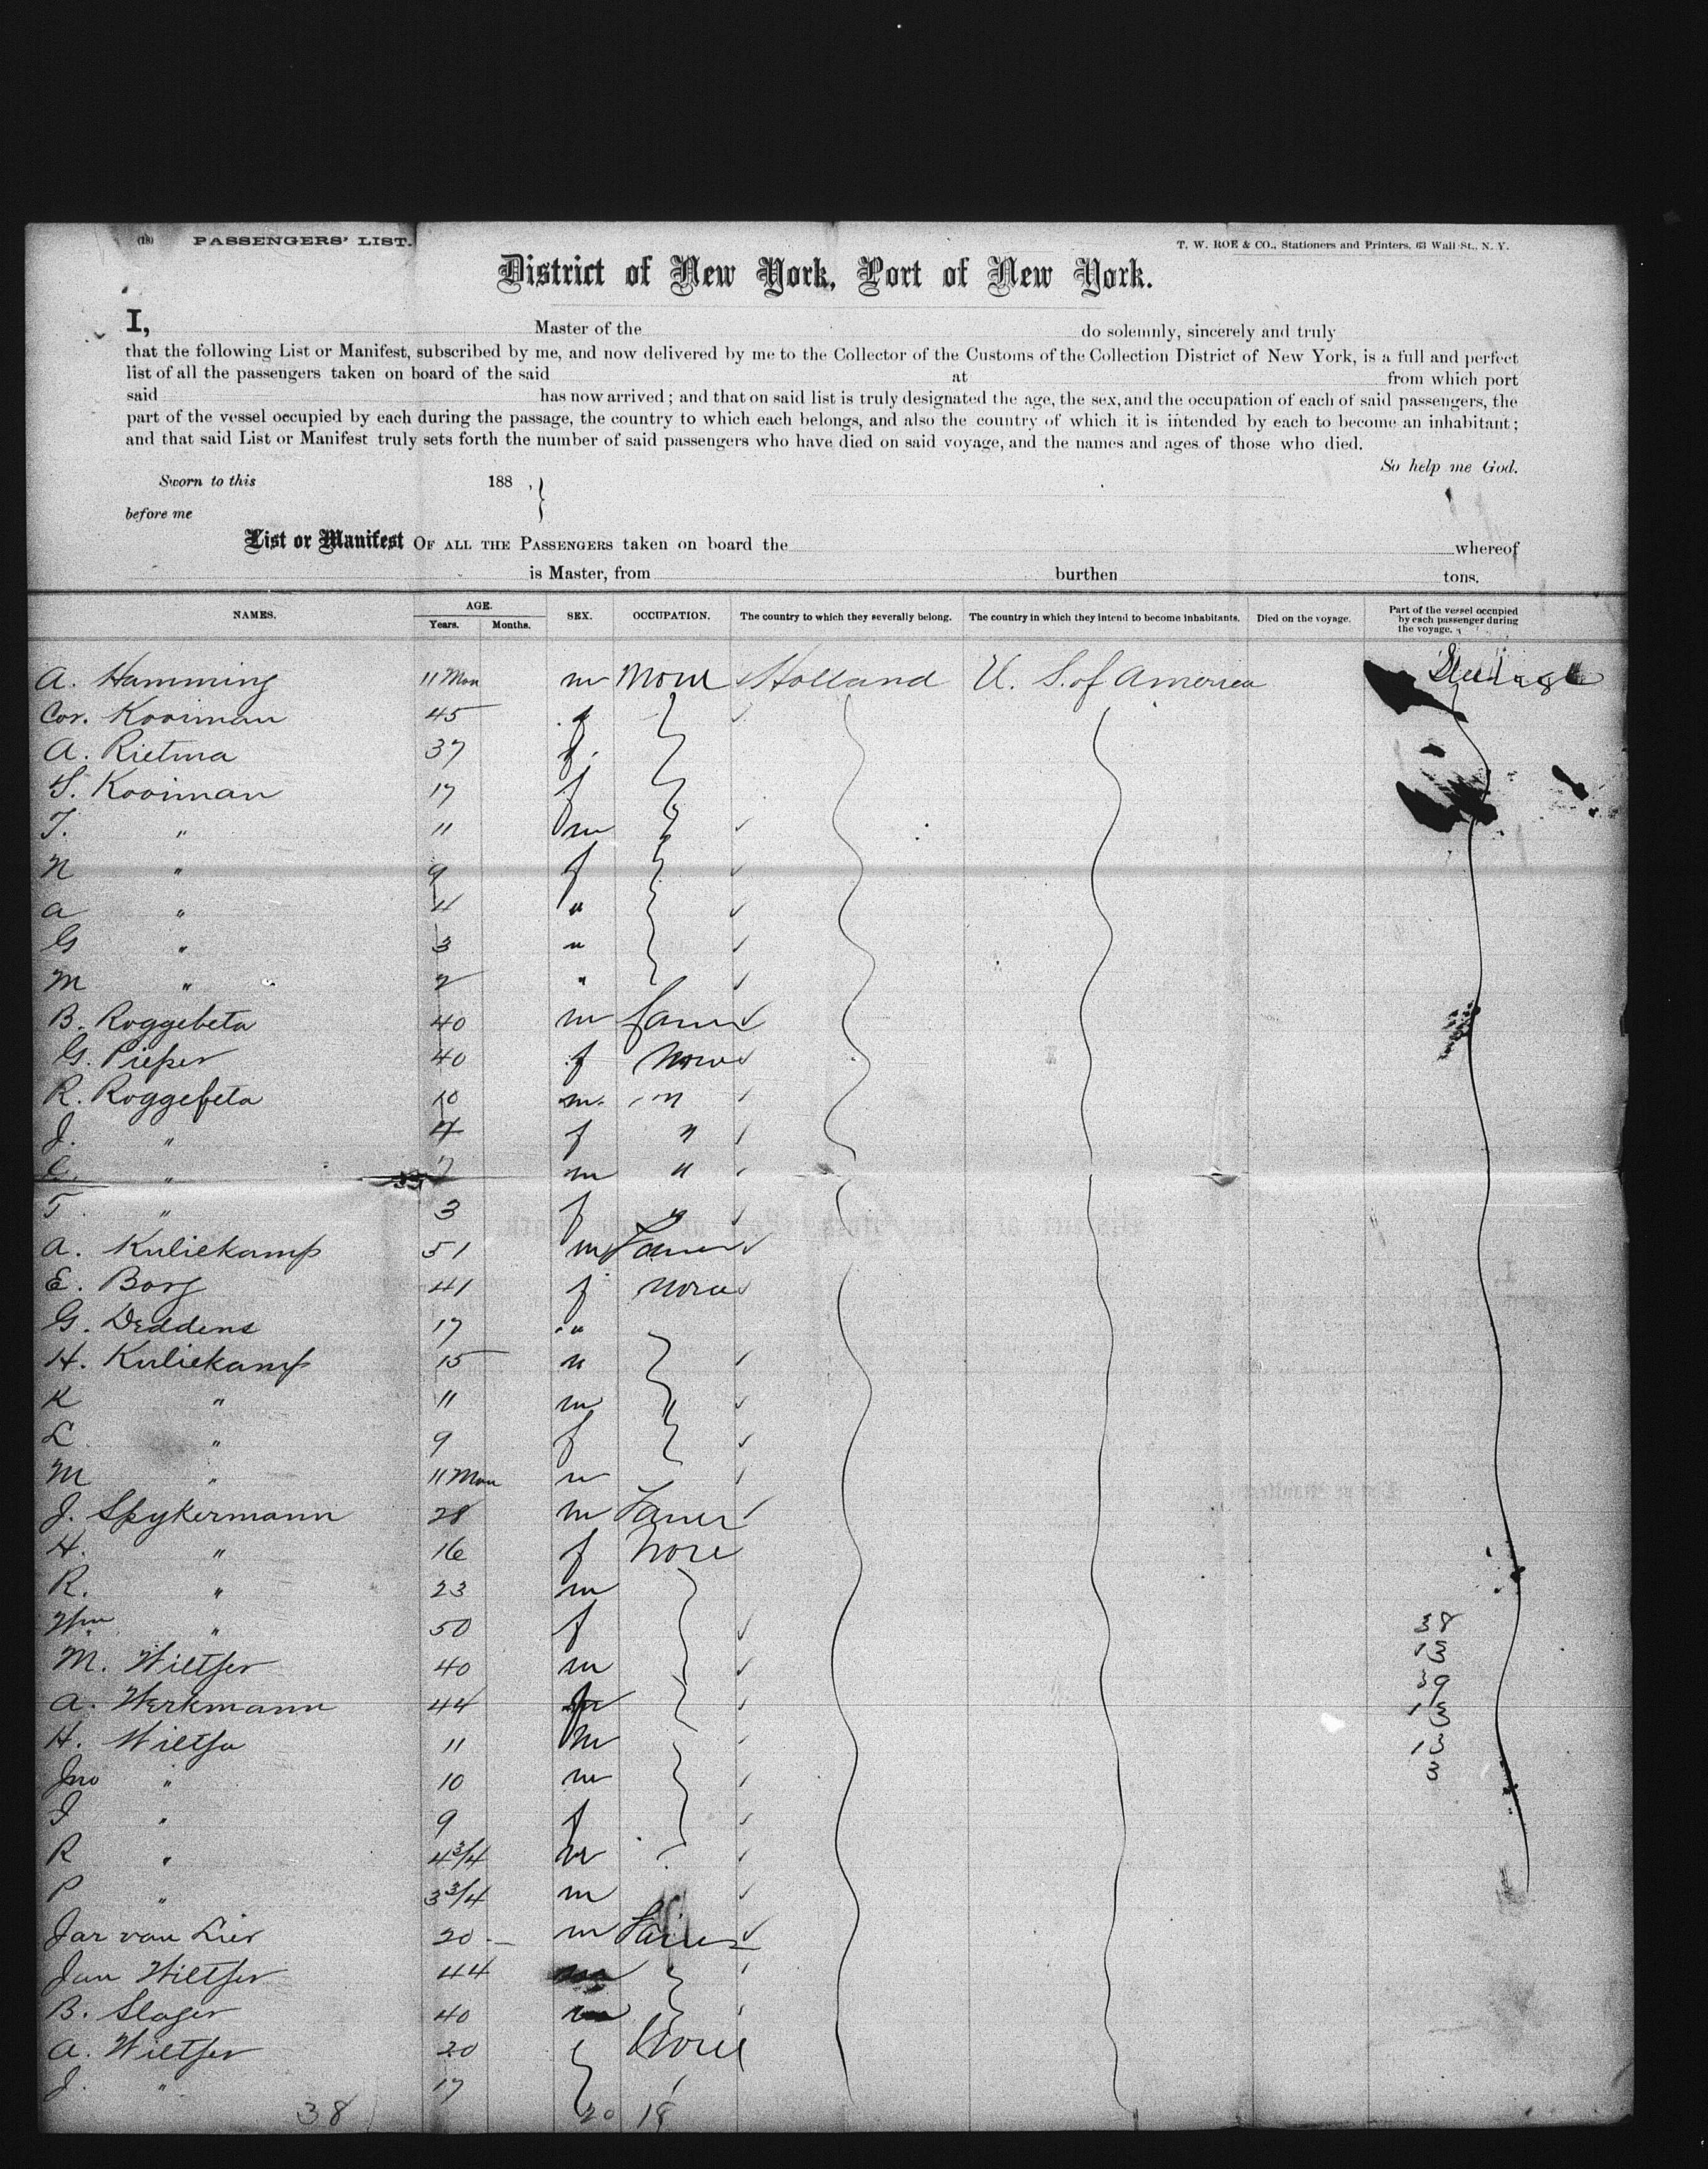 (18) PASSENGERS' LIST. T. W. ROE & CO., Stationers and Printers, 63 Wall St., N. Y.
District of New York, Port of New York.
I, Master of the do solemnly, sincerely and truly
that the following List or Manifest, subscribed by me, and now delivered by me to the Collector of the Customs of the Collection District of New York, is a full and perfect
list of all the passengers taken on board of the said at from which port
said has now arrived; and that on said list is truly designated the age, the sex, and the occupation of each of said passengers, the
part of the vessel occupied by each during the passage, the country to which each belongs, and also the country of which it is intended by each to become an inhabitant;
and that said List or Manifest truly sets forth the number of said passengers who have died on said voyage, and the names and ages of those who died.
So help me God.
Sworn to this 188 ,
before me
List or Manifest OF ALL THE PASSENGERS taken on board the whereof
is Master, from burthen tons.
NAMES. AGE. Years. Months. SEX. OCCUPATION. The country to which they severally belong. The country in which they intend to become inhabitants. Died on the voyage. Part of the vessel occupied by each passenger during the voyage.
A. Hamming 11 Mon m None Holland U. S. of America
Cor. Kooiman 45 f
A. Rietma 37 f.
S. Kooiman 17 f
T. " 11 m
N " 9 f
A " 4 "
G " 3 "
M " 2 "
B. Roggebeta 40 m
G. Pieper 40 f None
R. Roggebeta 10 m. "
J. " 4 f "
C. " 7 m "
T " 3 f "
A. Kuliekamp 51 m
E. Borg 41 f None
G. Deddens 17 "
H. Kuliekamp 15 "
K " 11 m
L " 9 f
M " 11 Mon m
J. Spykermann 28 m
H. " 16 f None
R. " 23 m
Wm " 50 f 38
M. Wiltjer 40 m 13
A. Werkmann 44 39
H. Wiltje 11 m 13
Jno " 10 m 13
I " 9 f 3
R " 4 3/4 m
P " 3 3/4 m
Jar van Lier 20 m
Jan Wiltjer 44
B. Slager 40
A. Wiltjer 20 None
J. " 17
38 20 18